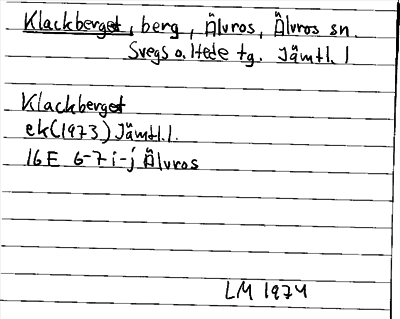 Klackberget, berg, Älvros, Älvros sn.
Svegs o. Hede tg. Jämtl. l
Klackberget
ek(1973) Jämtl. l.
16E 6-7 i-j Älvros
LM 1974